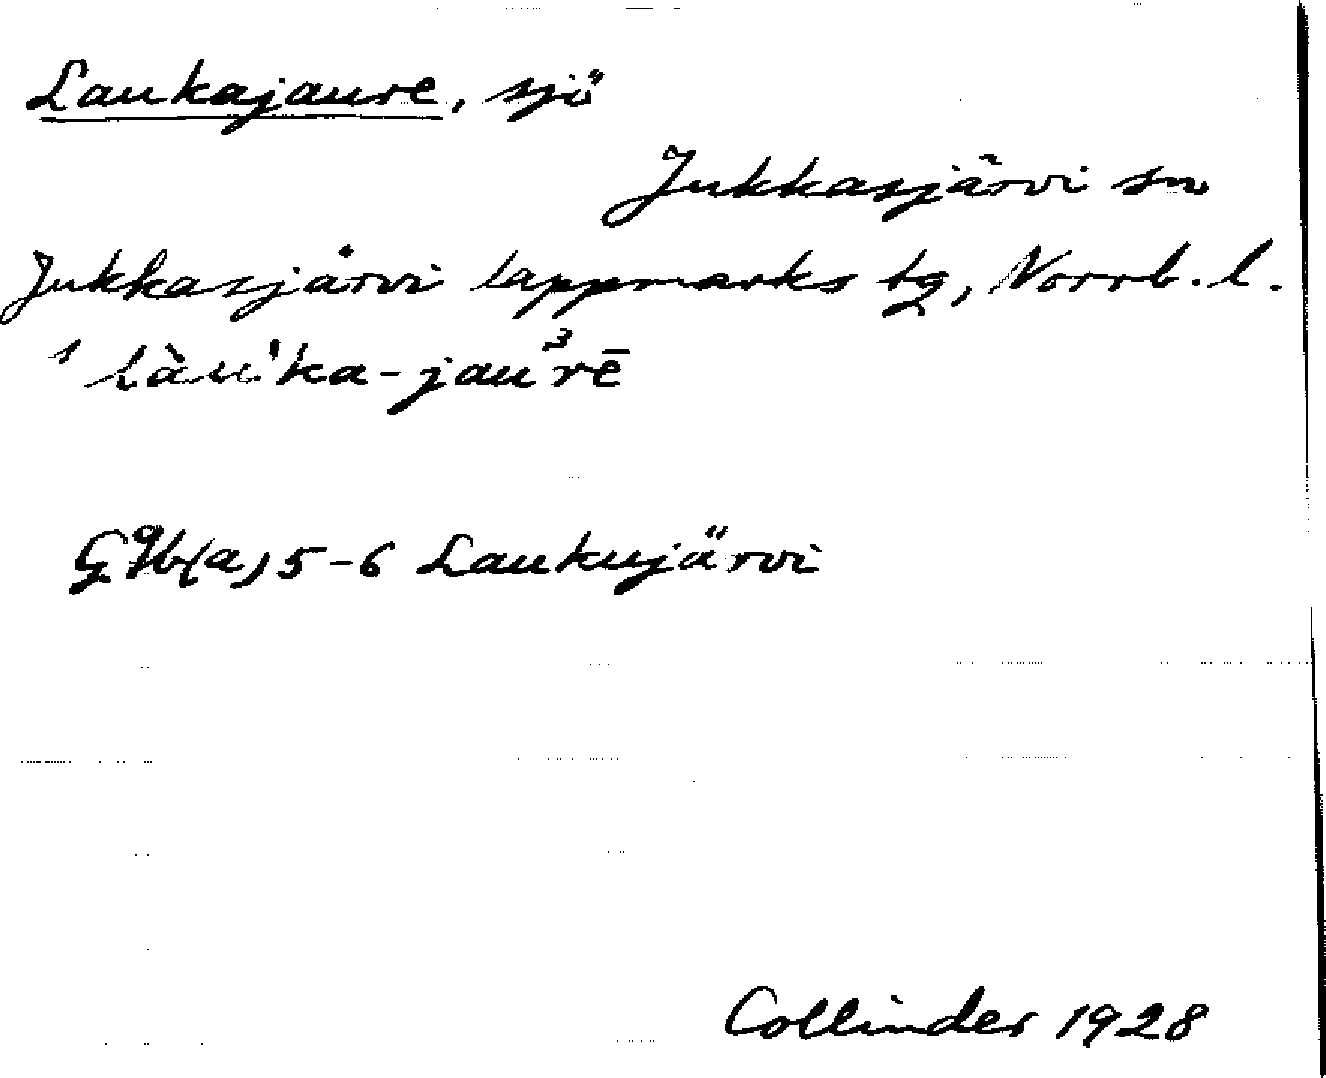 Laukajaure, sjö
Jukkasjärvi sn
Jukkasjärvi lappmarks tg, Norrb. l.
1 làu'ka-jau³rē
G 9b(a) 5-6 Laukujärvi
Collinder 1928